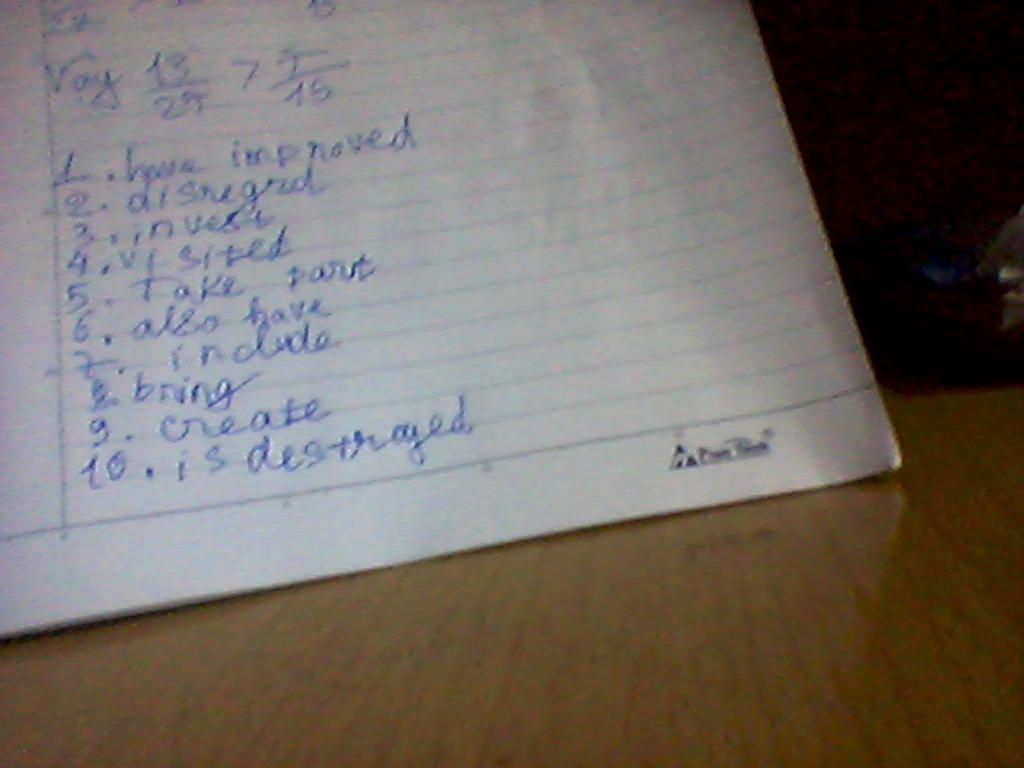 Vay 13/27 > 7/15
1. have improved
2. disregrd
3. invest
4. visited
5. Take part
6. also have
7. include
8. bring
9. create
10. is destroyed